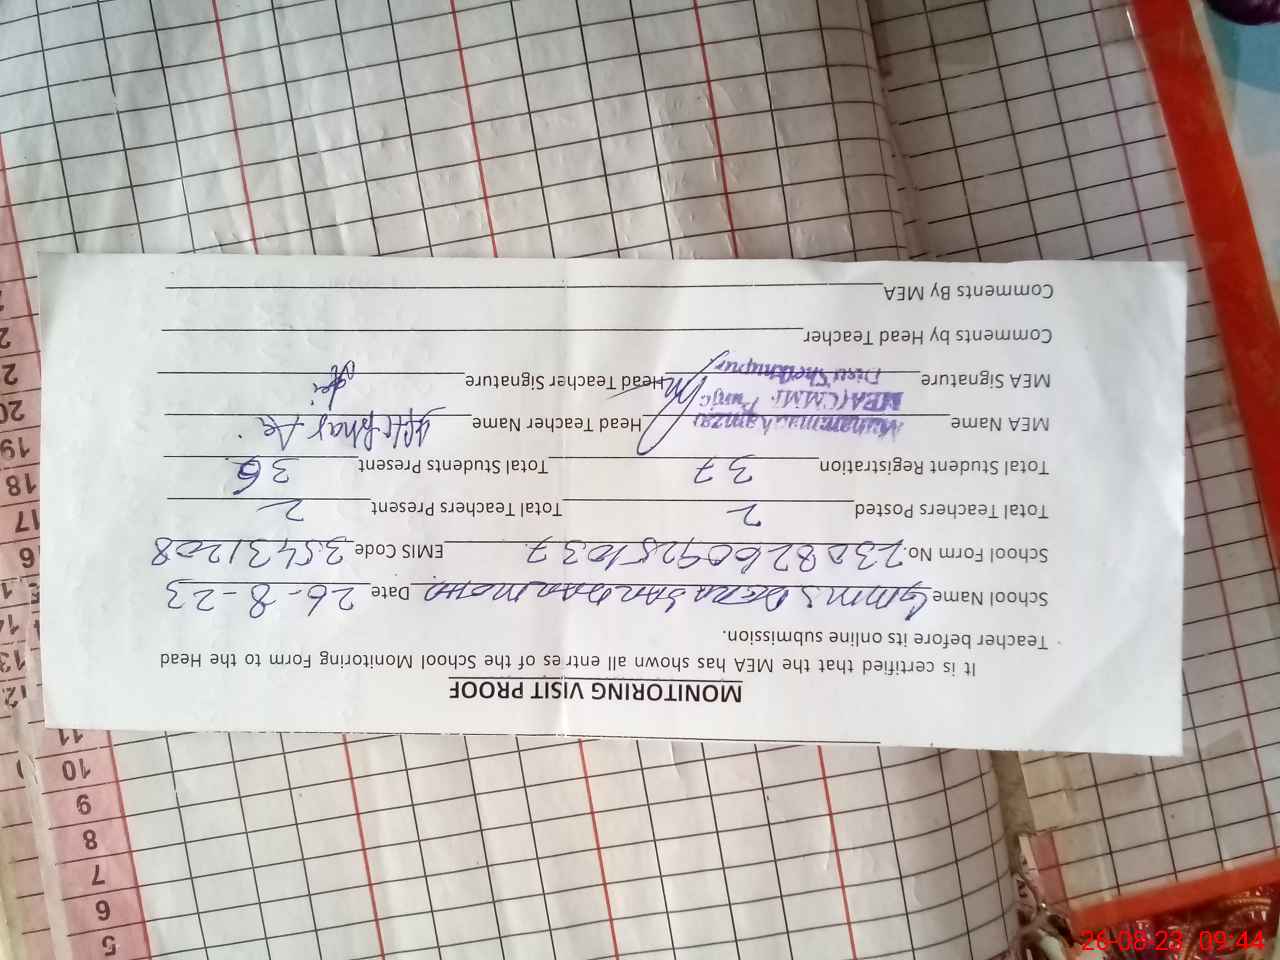 MONITORING VISIT PROOF
It is certified that the MEA has shown all entries of the School Monitoring Form to the Head
Teacher before its online submission.
School Name GMMS DERA Date 26-8-23
School Form No. 23082609251037 EMIS Code 35431208
Total Teachers Posted 2 Total Teachers Present 2
Total Student Registration 37 Total Students Present 36
MEA Name Muhammad Head Teacher Name
MEA (CMM). Punjab
MEA Signature Distt Sheikhupura Head Teacher Signature
Comments by Head Teacher
Comments By MEA
5
6
7
8
9
10
11
12
13
14
15
16
17
18
19
20
26-08-23 09:44